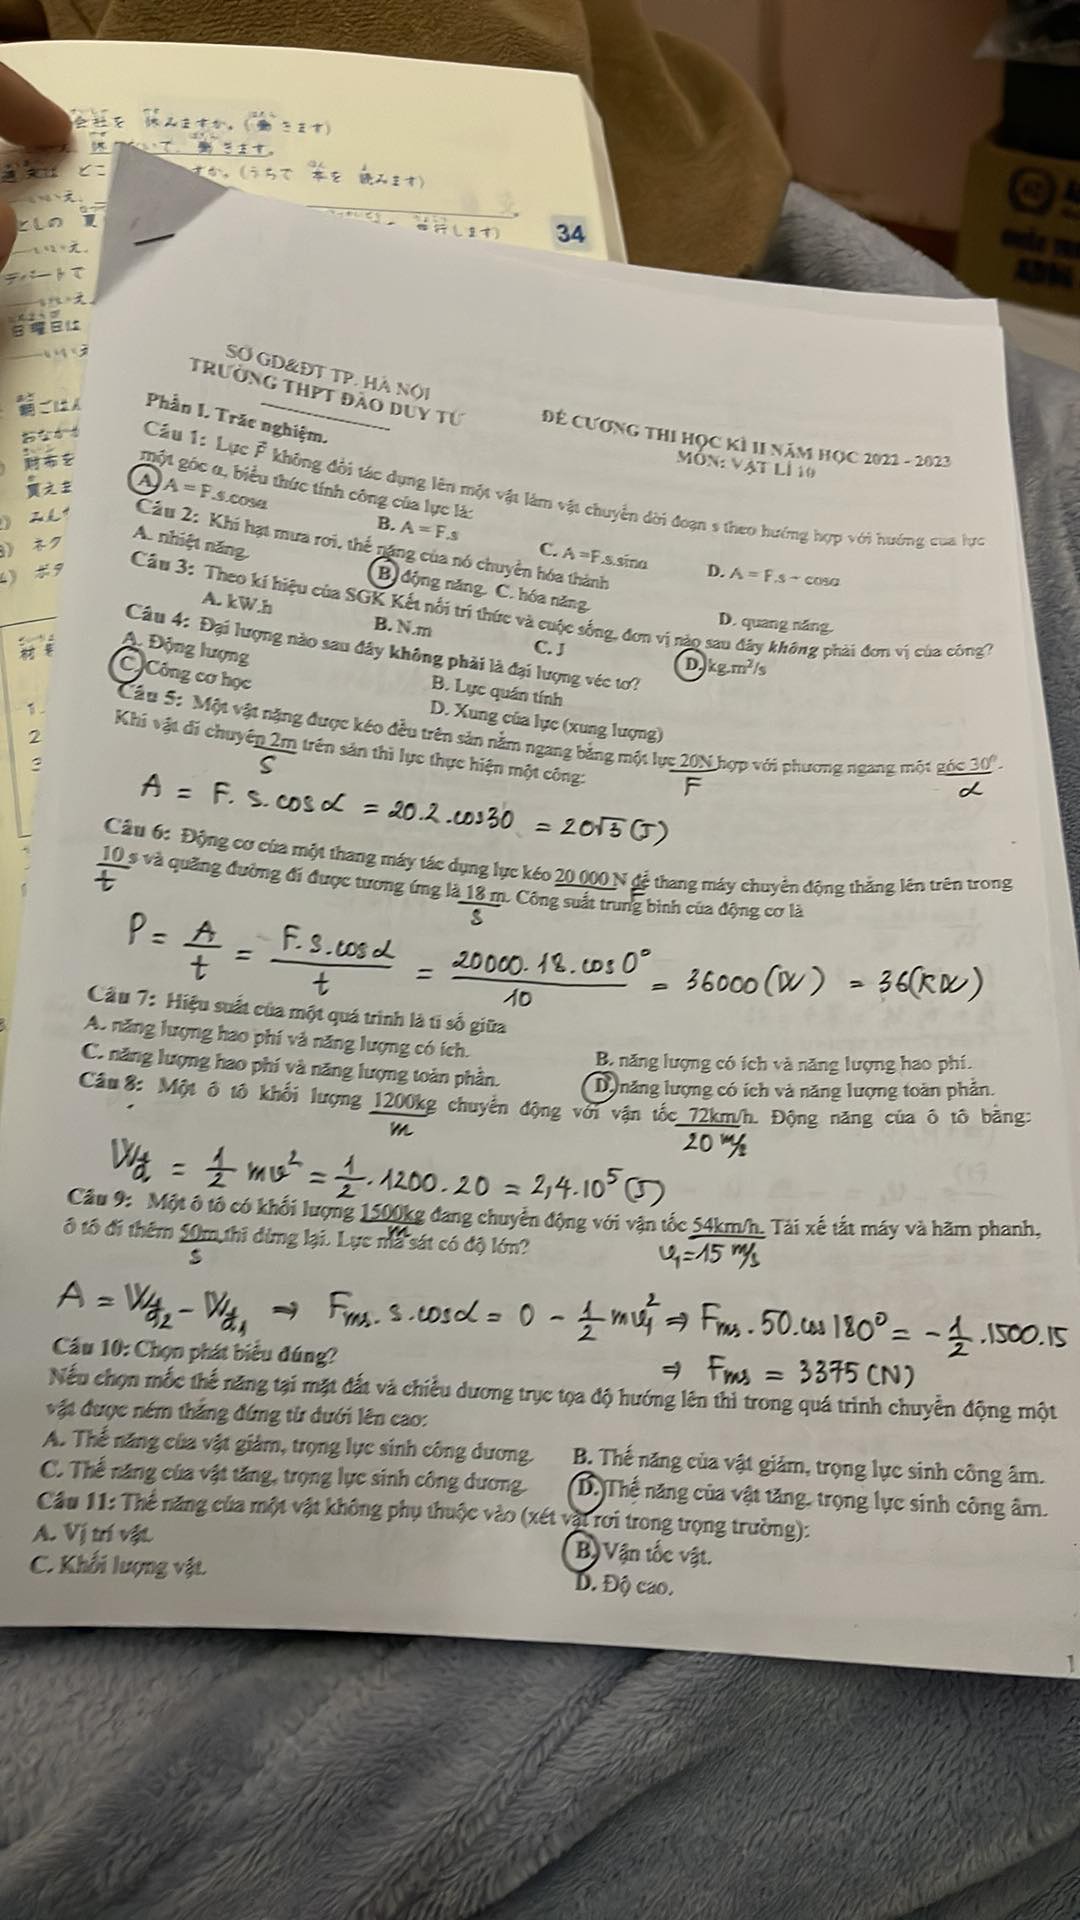 会社を 休みますか。(働きます)
休 いで、働きます。
どこ すか。(うちで 本を 読みます)
いいえ、
としの 夏
行します)
34
いいえ、
デパートで
いいえ、
日曜日は
いいえ
朝ごはん
おなかが
財布を
買えま
みんな
ネク
1.
2
3
SỞ GD&ĐT TP. HÀ NỘI
TRƯỜNG THPT ĐÀO DUY TỪ
ĐỀ CƯƠNG THI HỌC KÌ II NĂM HỌC 2022 - 2023
MÔN: VẬT LÍ 10
Phần I. Trắc nghiệm.
Câu 1: Lực F⃗ không đổi tác dụng lên một vật làm vật chuyển dời đoạn s theo hướng hợp với hướng của lực
một góc α, biểu thức tính công của lực là:
A. A = F.s.cosα B. A = F.s C. A =F.s.sinα D. A = F.s - cosα
Câu 2: Khi hạt mưa rơi, thế năng của nó chuyển hóa thành
A. nhiệt năng. B. động năng. C. hóa năng. D. quang năng.
Câu 3: Theo kí hiệu của SGK Kết nối tri thức và cuộc sống, đơn vị nào sau đây không phải đơn vị của công?
A. kW.h B. N.m C. J D. kg.m²/s
Câu 4: Đại lượng nào sau đây không phải là đại lượng véc tơ?
A. Động lượng B. Lực quán tính
C. Công cơ học D. Xung của lực (xung lượng)
Câu 5: Một vật nặng được kéo đều trên sàn nằm ngang bằng một lực 20N hợp với phương ngang một góc 30⁰.
F α
Khi vật di chuyển 2m trên sàn thì lực thực hiện một công:
S
A = F. s. cosα = 20.2.cos30 = 20√3 (J)
Câu 6: Động cơ của một thang máy tác dụng lực kéo 20 000 N để thang máy chuyển động thẳng lên trên trong
F
10 s và quãng đường đi được tương ứng là 18 m. Công suất trung bình của động cơ là
t S
P = A/t = F.s.cosα/t = 20000.18.cos0°/10 = 36000 (W) = 36 (KW)
Câu 7: Hiệu suất của một quá trình là tỉ số giữa
A. năng lượng hao phí và năng lượng có ích. B. năng lượng có ích và năng lượng hao phí.
C. năng lượng hao phí và năng lượng toàn phần. D. năng lượng có ích và năng lượng toàn phần.
Câu 8: Một ô tô khối lượng 1200kg chuyển động với vận tốc 72km/h. Động năng của ô tô bằng:
m 20 m/s
Wđ = 1/2 mv² = 1/2 . 1200. 20 = 2,4.10⁵ (J)
Câu 9: Một ô tô có khối lượng 1500kg đang chuyển động với vận tốc 54km/h. Tài xế tắt máy và hãm phanh,
m v₁ = 15 m/s
ô tô đi thêm 50m thì dừng lại. Lực ma sát có độ lớn?
S
A = Wđ₂ - Wđ₁ ⇒ Fms. s. cosα = 0 - 1/2 mv₁² ⇒ Fms . 50. cos 180° = - 1/2 .1500.15
⇒ Fms = 3375 (N)
Câu 10: Chọn phát biểu đúng?
Nếu chọn mốc thế năng tại mặt đất và chiều dương trục tọa độ hướng lên thì trong quá trình chuyển động một
vật được ném thẳng đứng từ dưới lên cao:
A. Thế năng của vật giảm, trọng lực sinh công dương. B. Thế năng của vật giảm, trọng lực sinh công âm.
C. Thế năng của vật tăng, trọng lực sinh công dương. D. Thế năng của vật tăng, trọng lực sinh công âm.
Câu 11: Thế năng của một vật không phụ thuộc vào (xét vật rơi trong trọng trường):
A. Vị trí vật. B. Vận tốc vật.
C. Khối lượng vật. D. Độ cao.
1